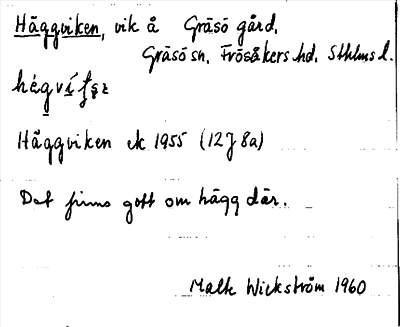 Häggviken, vik å Gräsö gård,
Gräsö sn, Frösåkers hd, Sthlms l.
Häggviken ek 1955 (12J 8a)
Det finns gott om hägg där.
Malte Wickström 1960